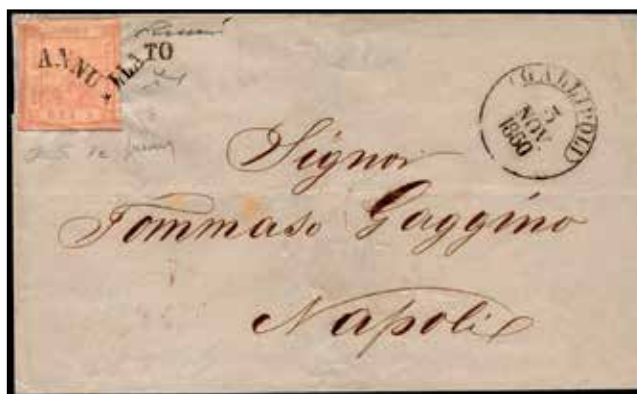 ANNULLATO
(GALLIPOLI)
5
NOV.
1860
Signor
Tommaso Gaggino
Napoli